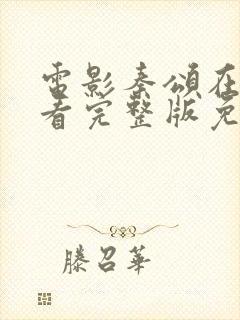 電影秦頌在
看完整版免
滕召華